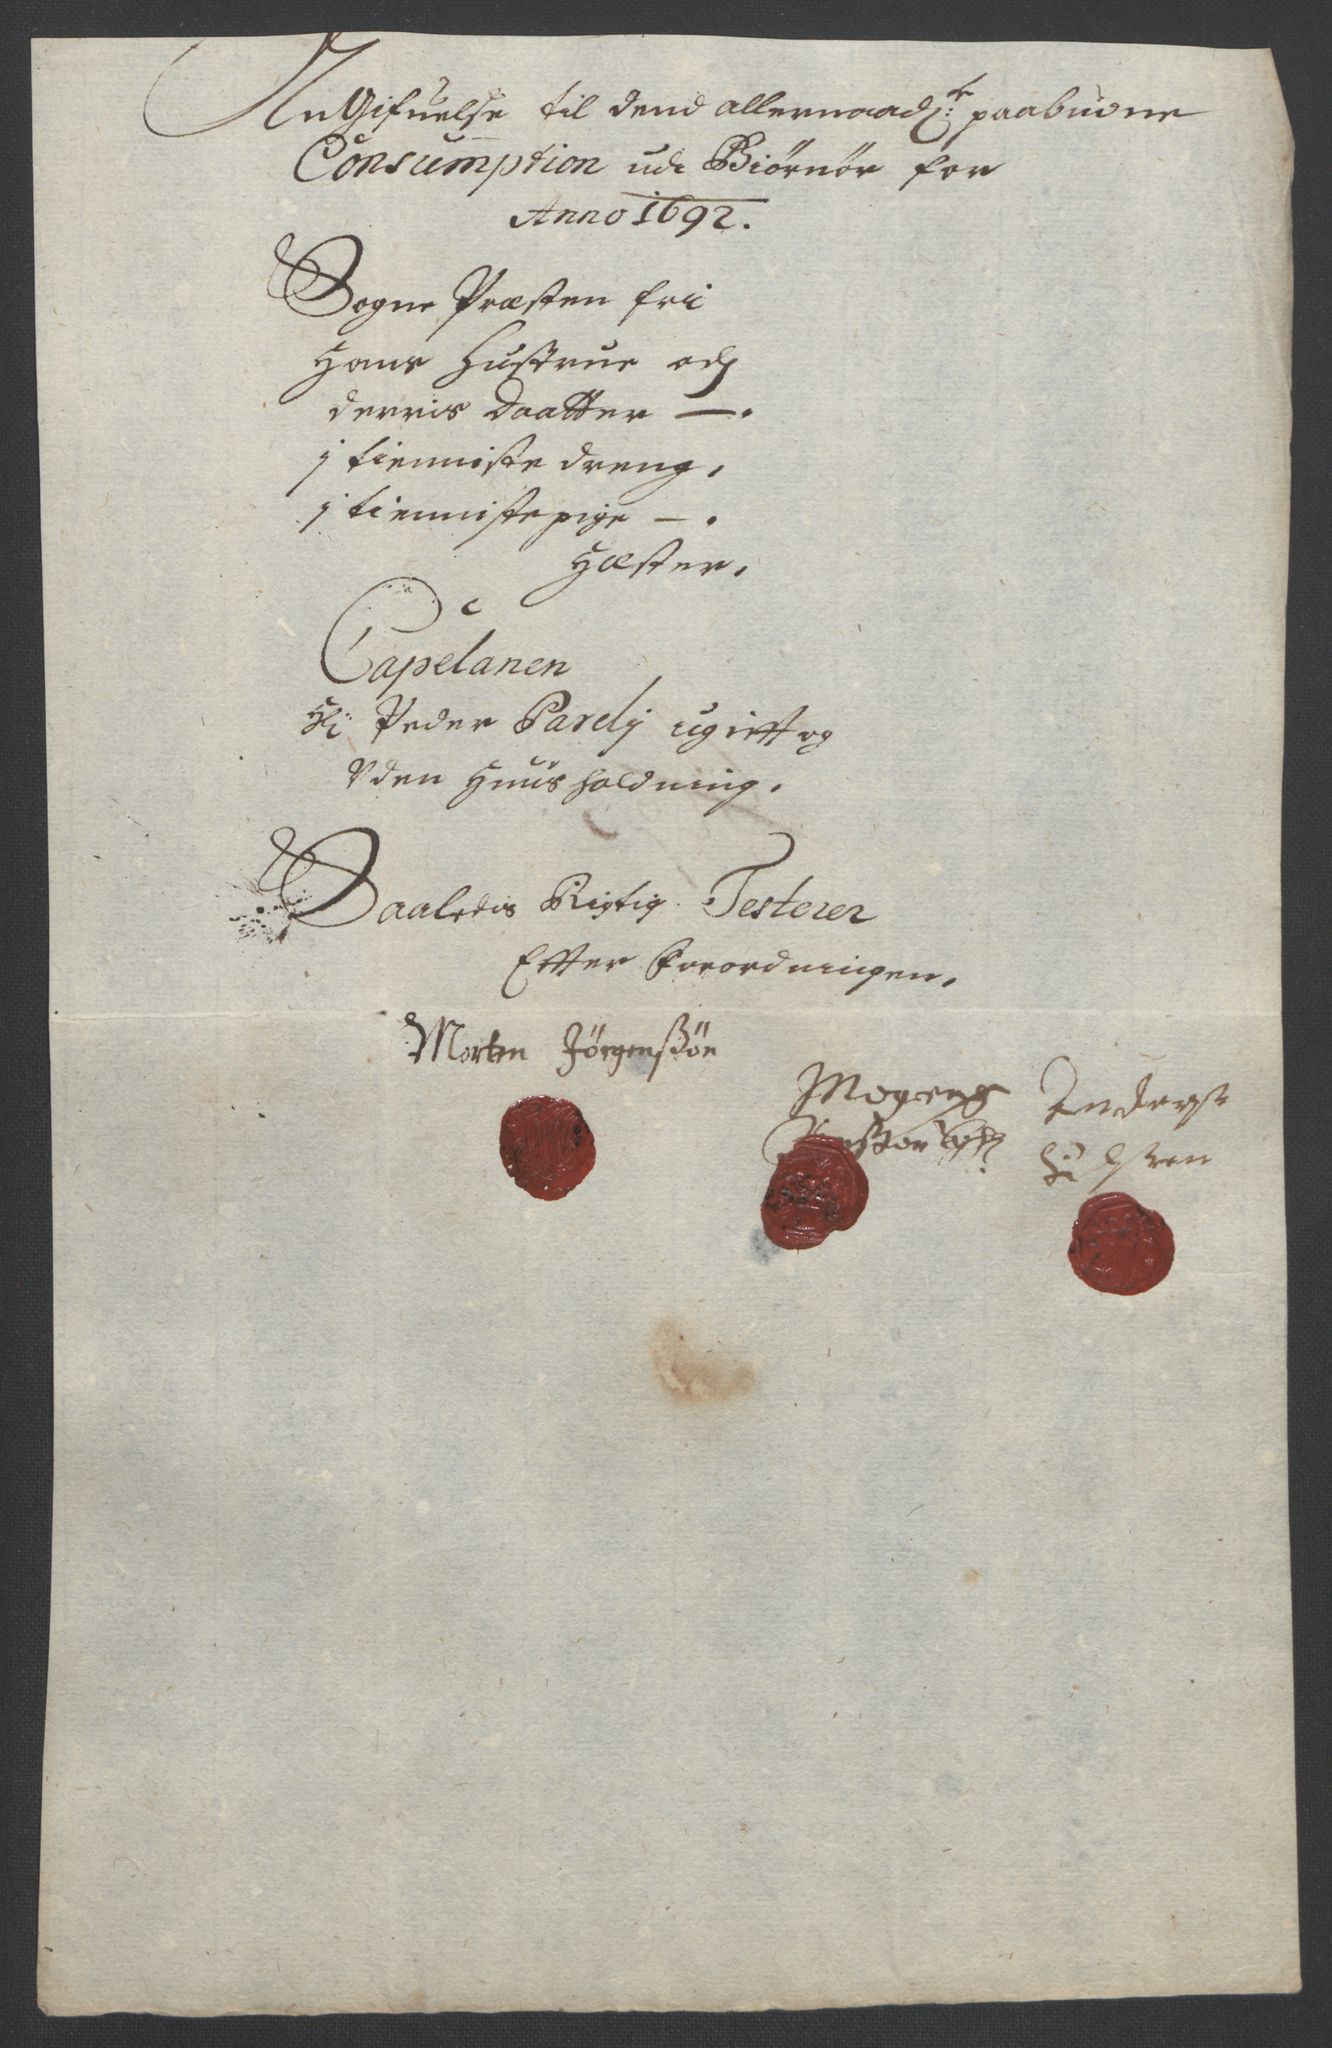 AnGifuelse til dend allernaadr: paabudne
Consumption udi Biørnør for
Anno 1692.
Sogne Præsten fri
Hans Hustrue och
derris Daatter —.
j tienniste dreng.
j tienniste pige —.
Hæster.
Capelanen
Hr: Peder Parelj ugift og
Vden Huus holdning.
Saaledis Rigtig Testerer
Efter Forordningen.
Morten Jørgenssøn
Mogens Anderss